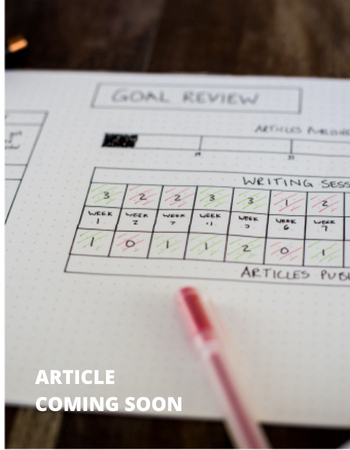 GOAL REVIEW
ARTICLES
WRITING SESS
3 2 2 3 3 1 2
WEEK 1 WEEK 2 WEEK WEEK WEEK WEEK 6 WEEK 7
1 0 1 1 2 0 1
ARTICLES PUBL
ARTICLE
COMING SOON